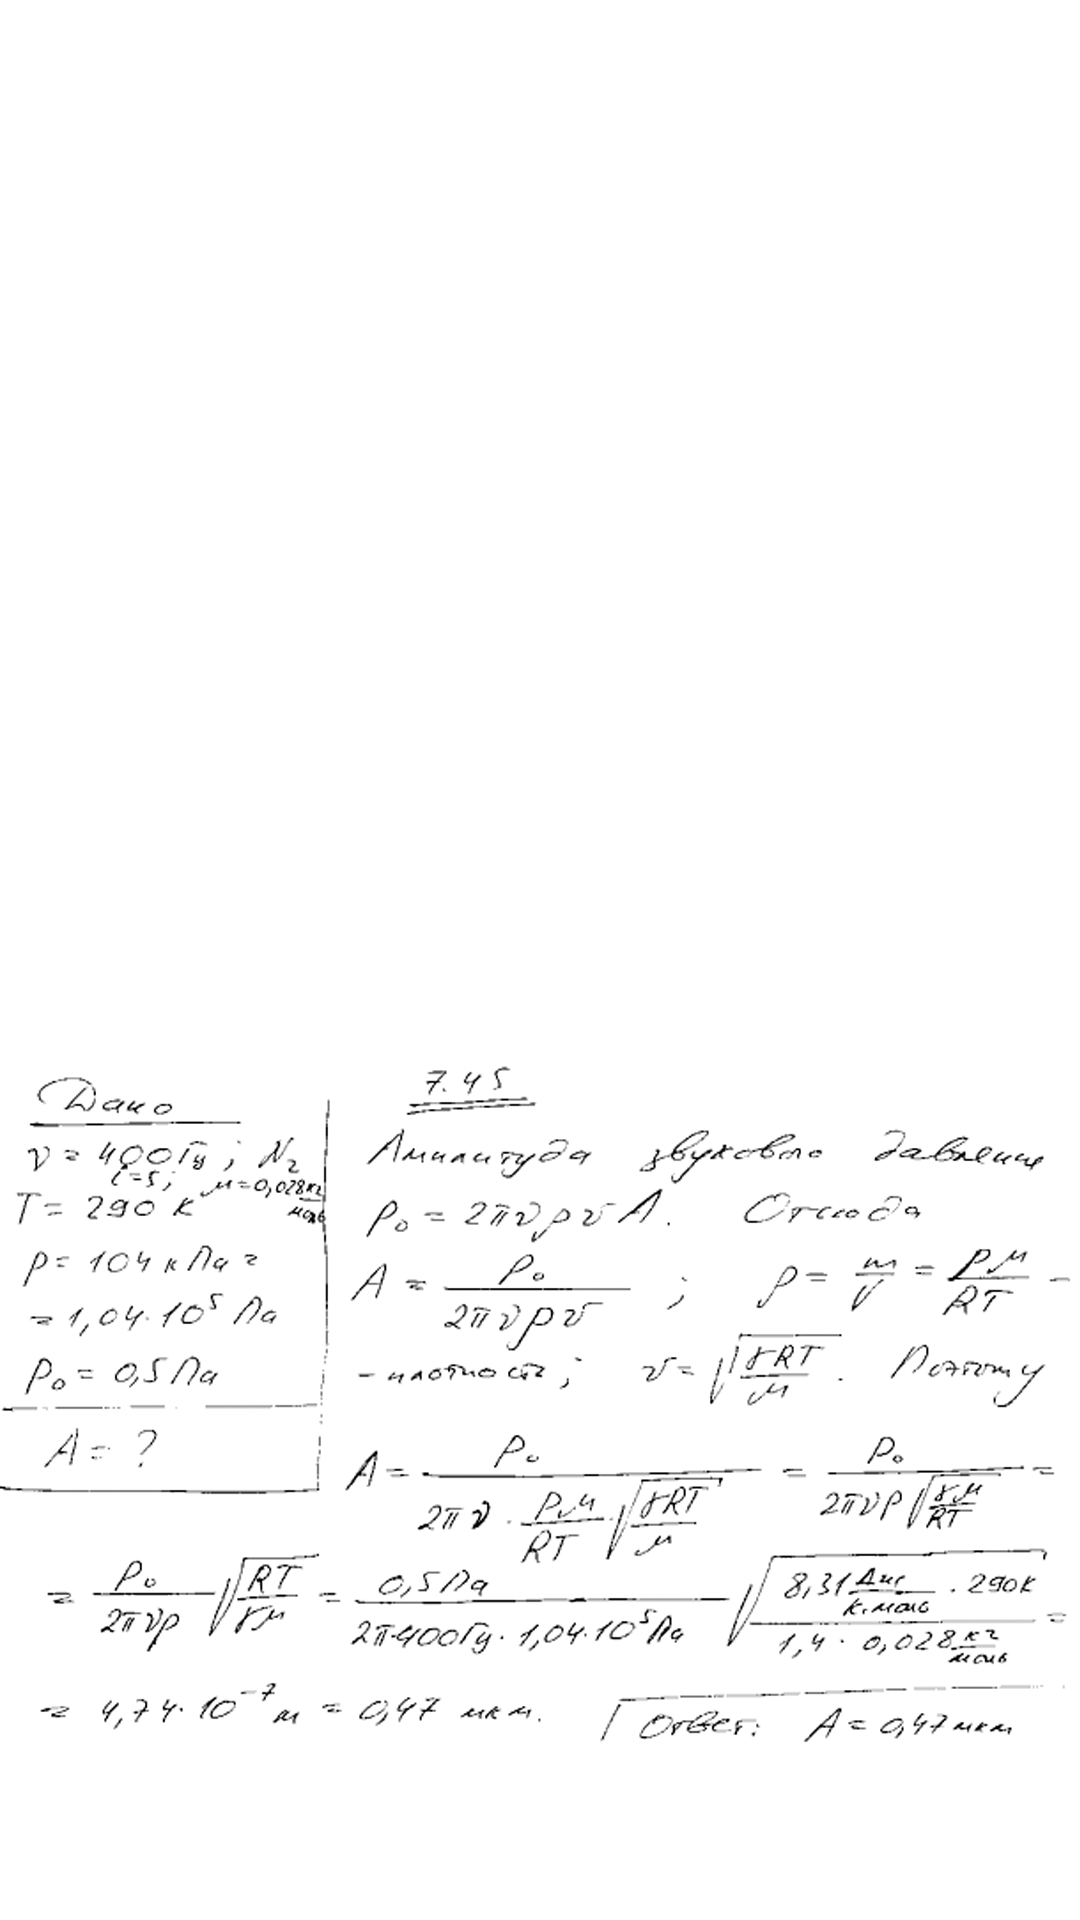 7.45
Дано
ν = 400 Гц ; N₂
i=5; μ=0,028 кг/моль
T = 290 К
p = 104 кПа =
= 1,04·10⁵ Па
p₀ = 0,5 Па
A = ?
Амплитуда звукового давления
p₀ = 2πνρvA. Отсюда
A = p₀/(2πνρv) ; ρ = m/V = pμ/RT –
– плотность ; v = √(γRT/μ). Поэтому
A = p₀/(2πν · pμ/RT · √(γRT/μ)) = p₀/(2πνp√(γμ/RT)) =
= p₀/(2πνp) √(RT/γμ) = 0,5 Па/(2π·400 Гц · 1,04·10⁵ Па) √(8,31 Дж/(К·моль) · 290 К/(1,4 · 0,028 кг/моль)) =
= 4,74·10⁻⁷ м = 0,47 мкм. Ответ: A = 0,47 мкм